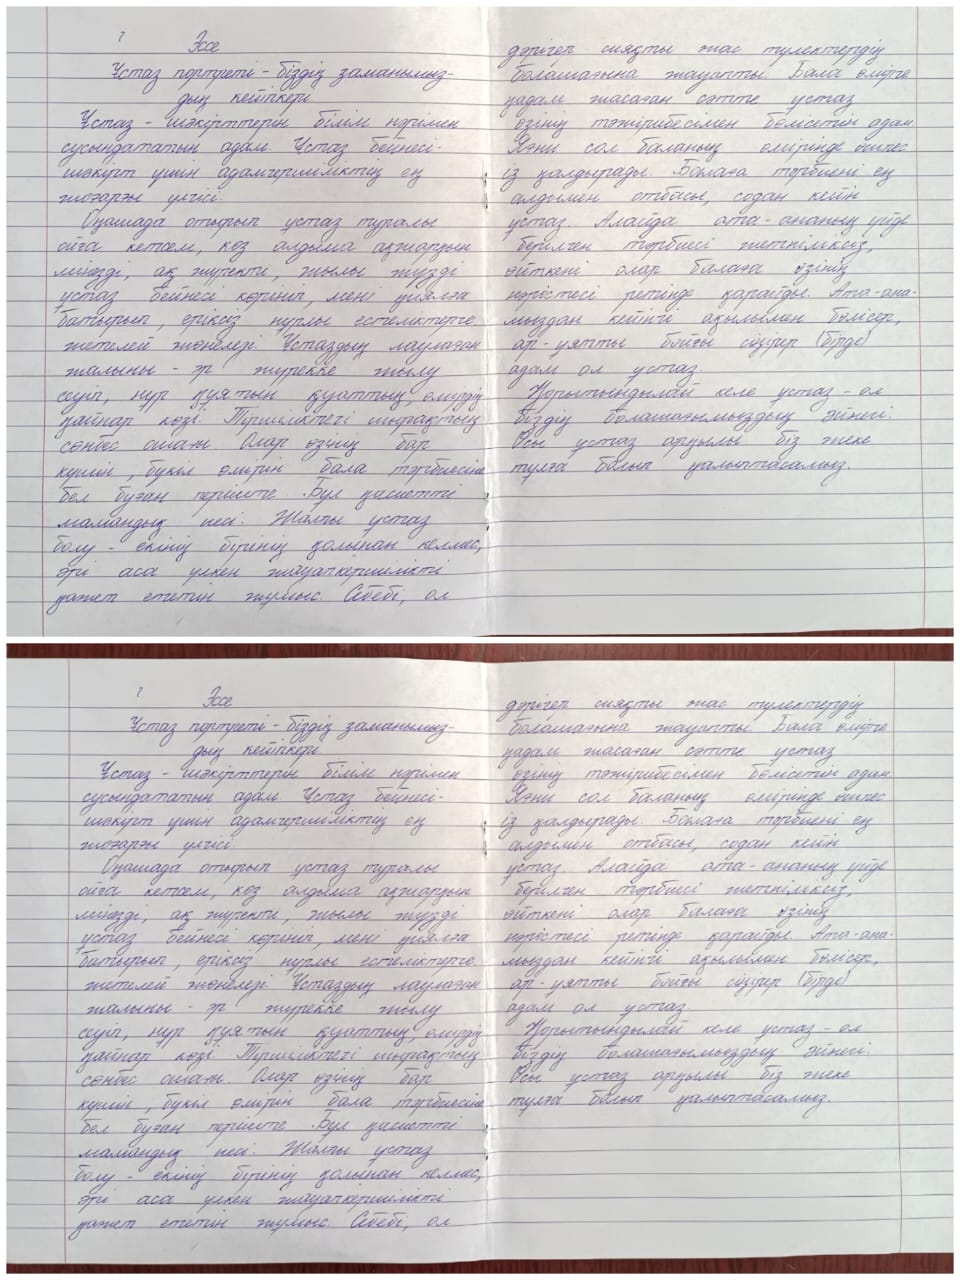 Эссе
Ұстаз портреті - біздің заманымыз-
дың кейіпкері
Ұстаз - шәкірттерін білім нәрімен
сусындататын адам. Ұстаз бейнесі -
шәкірт үшін адамгершіліктің ең
жоғарғы үлгісі.
Оңашада отырып ұстаз туралы
ойға кетсем, көз алдыма ақжарқын
мінезді, ақ жүректі, жылы жүзді
ұстаз бейнесі көрініп, мені қиялға
батырып, еріксіз нұрлы естеліктерге
жетелей жөнеледі. Ұстаздың лаулаған
жалыны - әр жүрекке жылу
сеуіп, нұр құятын қуаттың, өмірдің
қайнар көзі. Тіршіліктегі шырақтың
сөнбес отын. Олар өзінің бар
күшін, бүкіл өмірін бала тәрбиесіне
бел буған періште. Бұл қасиетті
мамандық иесі. Жалпы ұстаз
болу - екінің бірінің қолынан келмес,
әрі аса үлкен жауапкершілікті
қажет ететін жұмыс. Себебі, ол
дәрігер сияқты жас түлектердің
болашағына жауапты. Бала өмірге
қадам жасаған сәтте ұстаз
өзінің тәжірибесімен бөлісетін адам.
Яғни сол баланың өмірінде өшпес
із қалдырады. Балаға тәрбиені ең
алдымен отбасы, содан кейін
ұстаз. Алайда ата-ананың үйде
берілген тәрбиесі жеткіліксіз,
өйткені олар балаға өзінің
нәрестесі ретінде қарайды. Ата-ана-
мыздан кейінгі ақылымен бөлісер,
ар-ұятты бойғы сіңірер (бірде)
адам ол ұстаз.
Қорытындылай келе ұстаз - ол
біздің болашағымыздың әйнегі.
Осы ұстаз арқылы біз жеке
тұлға болып қалыптасамыз.
Эссе
Ұстаз портреті - біздің заманымыз-
дың кейіпкері
Ұстаз - шәкірттерін білім нәрімен
сусындататын адам. Ұстаз бейнесі -
шәкірт үшін адамгершіліктің ең
жоғарғы үлгісі.
Оңашада отырып ұстаз туралы
ойға кетсем, көз алдыма ақжарқын
мінезді, ақ жүректі, жылы жүзді
ұстаз бейнесі көрініп, мені қиялға
батырып, еріксіз нұрлы естеліктерге
жетелей жөнеледі. Ұстаздың лаулаған
жалыны - әр жүрекке жылу
сеуіп, нұр құятын қуаттың, өмірдің
қайнар көзі. Тіршіліктегі шырақтың
сөнбес отын. Олар өзінің бар
күшін, бүкіл өмірін бала тәрбиесіне
бел буған періште. Бұл қасиетті
мамандық иесі. Жалпы ұстаз
болу - екінің бірінің қолынан келмес,
әрі аса үлкен жауапкершілікті
қажет ететін жұмыс. Себебі, ол
дәрігер сияқты жас түлектердің
болашағына жауапты. Бала өмірге
қадам жасаған сәтте ұстаз
өзінің тәжірибесімен бөлісетін адам.
Яғни сол баланың өмірінде өшпес
із қалдырады. Балаға тәрбиені ең
алдымен отбасы, содан кейін
ұстаз. Алайда ата-ананың үйде
берілген тәрбиесі жеткіліксіз,
өйткені олар балаға өзінің
нәрестесі ретінде қарайды. Ата-ана-
мыздан кейінгі ақылымен бөлісер,
ар-ұятты бойғы сіңірер (бірде)
адам ол ұстаз.
Қорытындылай келе ұстаз - ол
біздің болашағымыздың әйнегі.
Осы ұстаз арқылы біз жеке
тұлға болып қалыптасамыз.